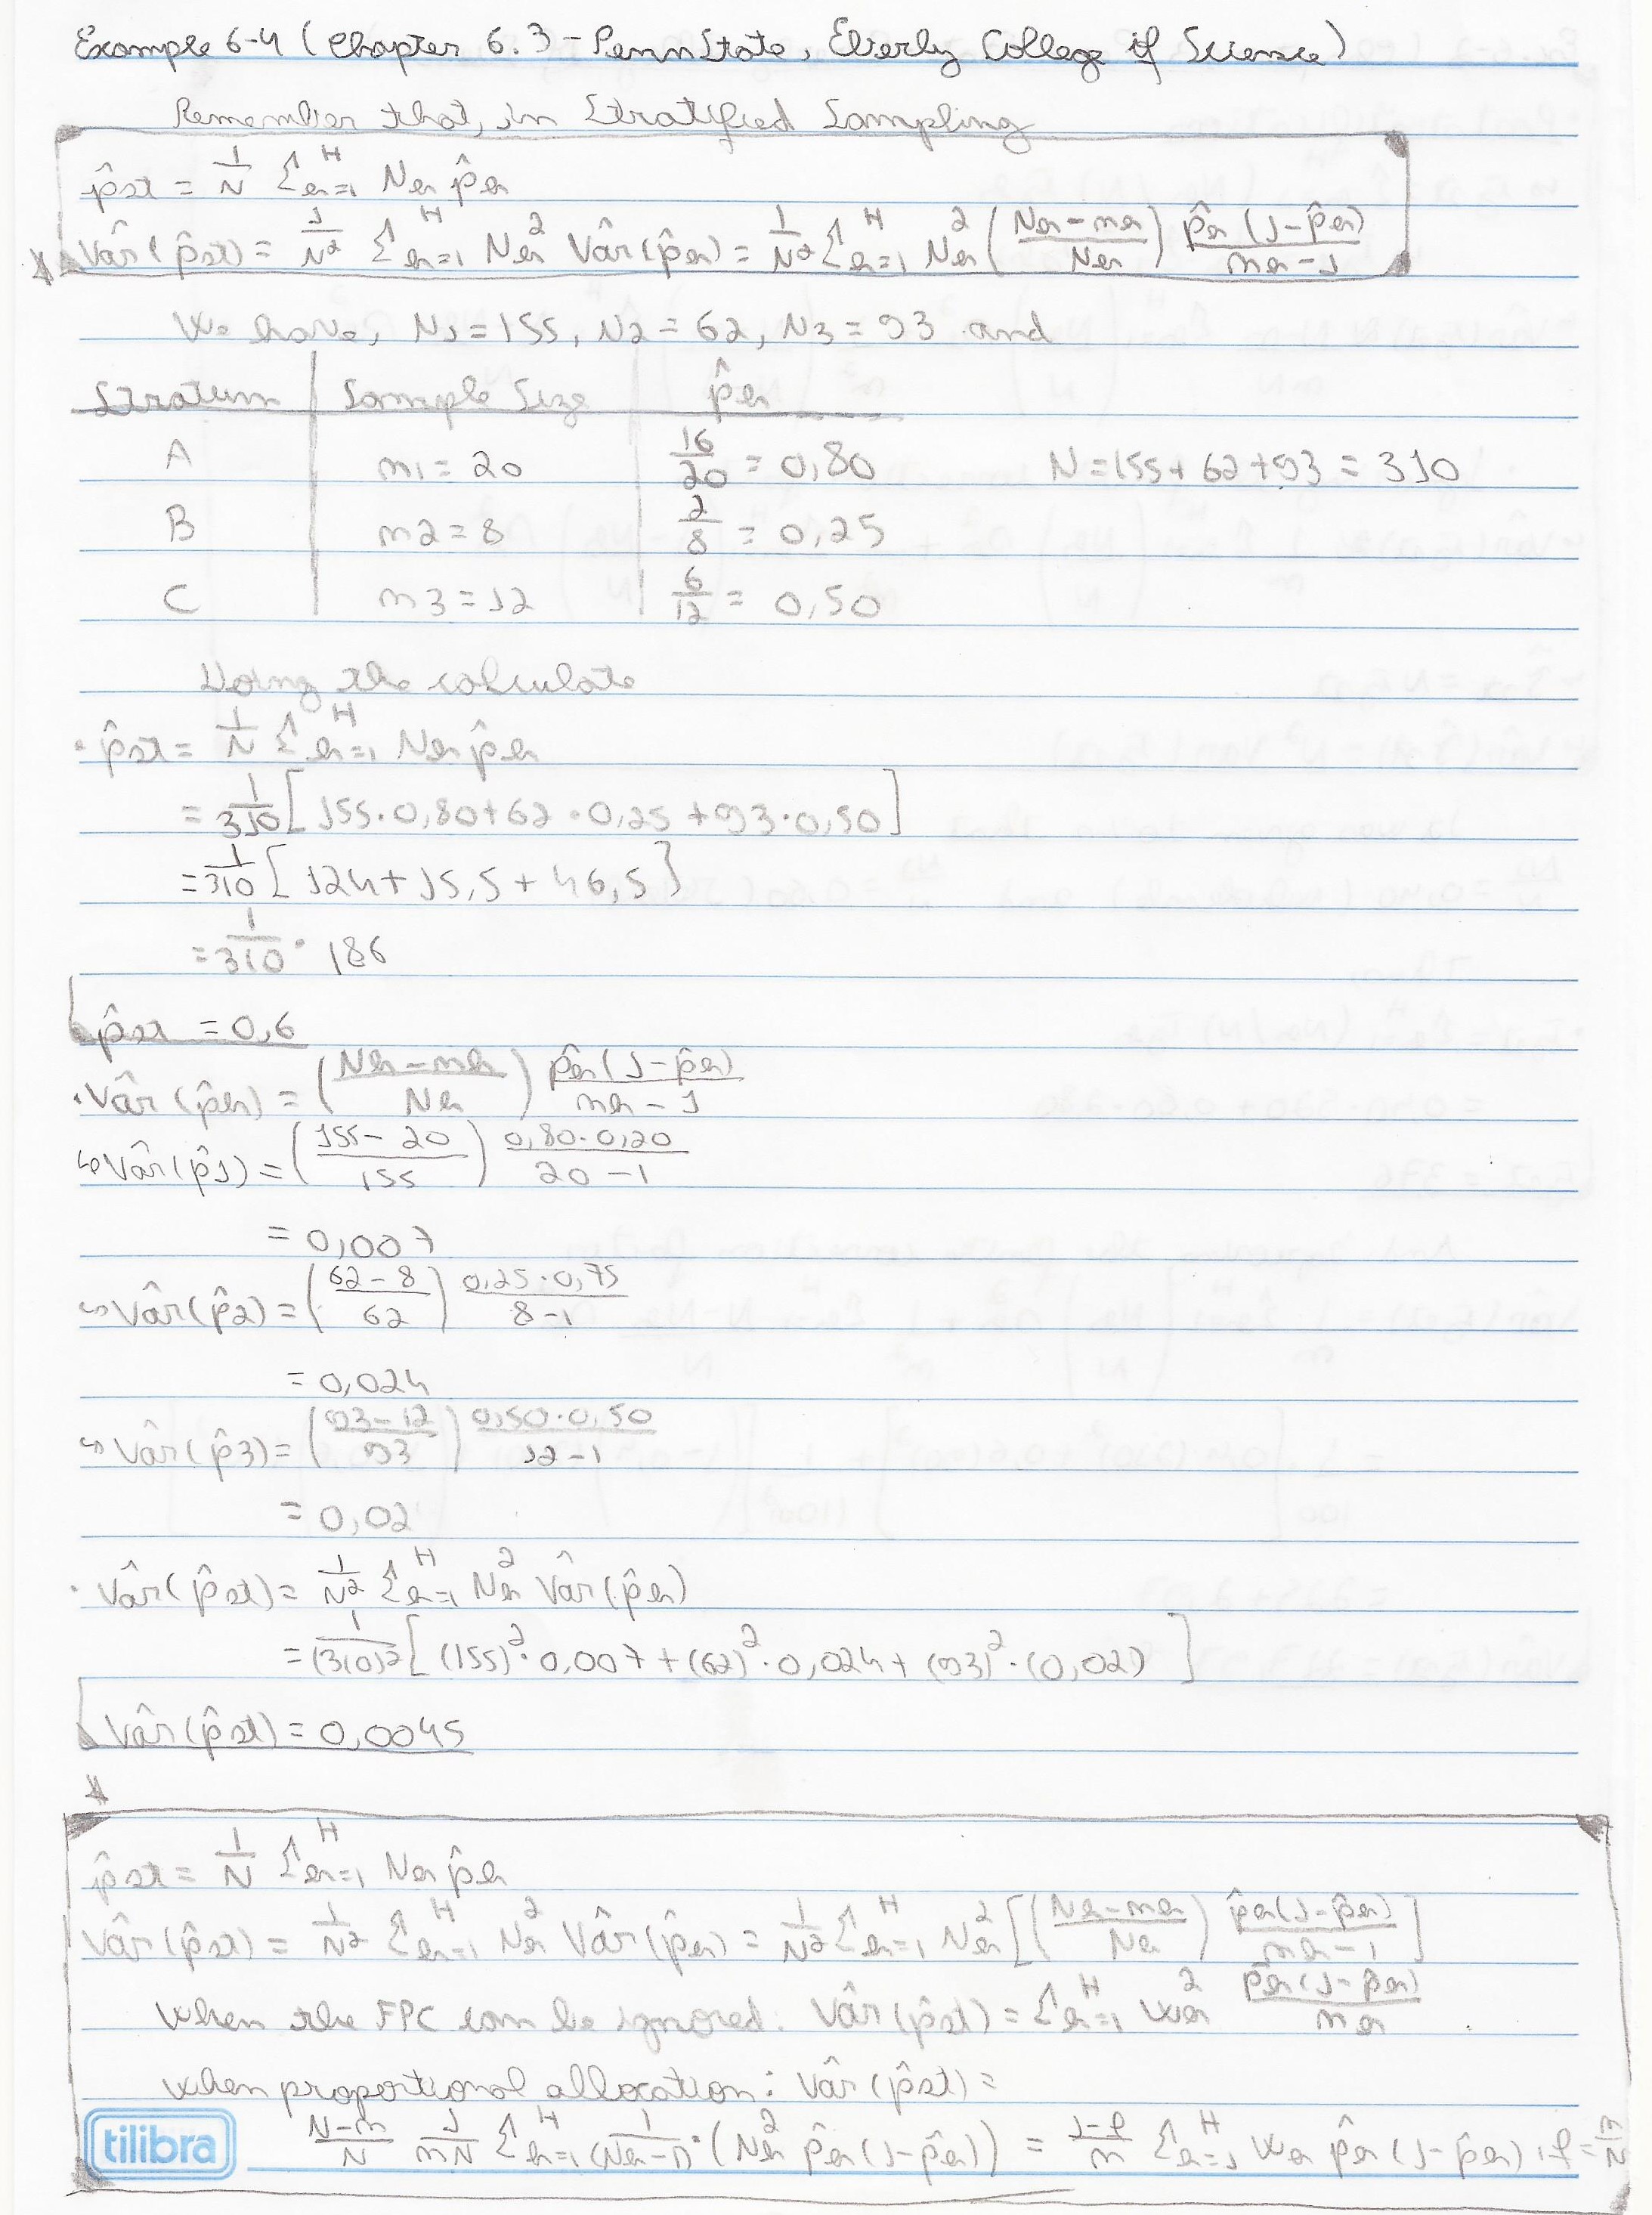 Example 6-4 (Chapter 6.3 - PennState, Eberly College of Science)
Remember that, in Stratified Sampling
p̂st = 1/N Σ_h=1^H Nh p̂h
Vâr(p̂st) = 1/N² Σ_h=1^H Nh² Vâr(p̂h) = 1/N² Σ_h=1^H Nh² ((Nh - nh)/Nh) p̂h(1-p̂h)/(nh - 1)
We have, N1 = 155, N2 = 62, N3 = 93 and
Stratum | Sample Size | p̂h
A | n1 = 20 | 16/20 = 0,80 N = 155 + 62 + 93 = 310
B | n2 = 8 | 2/8 = 0,25
C | n3 = 12 | 6/12 = 0,50
Doing the calculate
· p̂st = 1/N Σ_h=1^H Nh p̂h
= 1/310 [155·0,80 + 62·0,25 + 93·0,50]
= 1/310 [124 + 15,5 + 46,5]
= 1/310 · 186
p̂st = 0,6
· Vâr(p̂h) = ((Nh - nh)/Nh) p̂h(1-p̂h)/(nh - 1)
↪ Vâr(p̂1) = ((155 - 20)/155) 0,80·0,20/(20 - 1)
= 0,007
↪ Vâr(p̂2) = ((62 - 8)/62) 0,25·0,75/(8 - 1)
= 0,024
↪ Vâr(p̂3) = ((93 - 12)/93) 0,50·0,50/(12 - 1)
= 0,02
· Vâr(p̂st) = 1/N² Σ_h=1^H Nh² Vâr(p̂h)
= 1/(310)² [(155)²·0,007 + (62)²·0,024 + (93)²·(0,02)]
Vâr(p̂st) = 0,0045
p̂st = 1/N Σ_h=1^H Nh p̂h
Vâr(p̂st) = 1/N² Σ_h=1^H Nh² Vâr(p̂h) = 1/N² Σ_h=1^H Nh² [((Nh - nh)/Nh) p̂h(1-p̂h)/(nh - 1)]
When the FPC can be ignored: Vâr(p̂st) = Σ_h=1^H Wh² p̂h(1-p̂h)/nh
When proportional allocation: Vâr(p̂st) =
(N-n)/N 1/nN Σ_h=1^H 1/(Nh-1)·(Nh² p̂h(1-p̂h)) = (1-f)/n Σ_h=1^H Wh p̂h(1-p̂h), f = n/N
tilibra